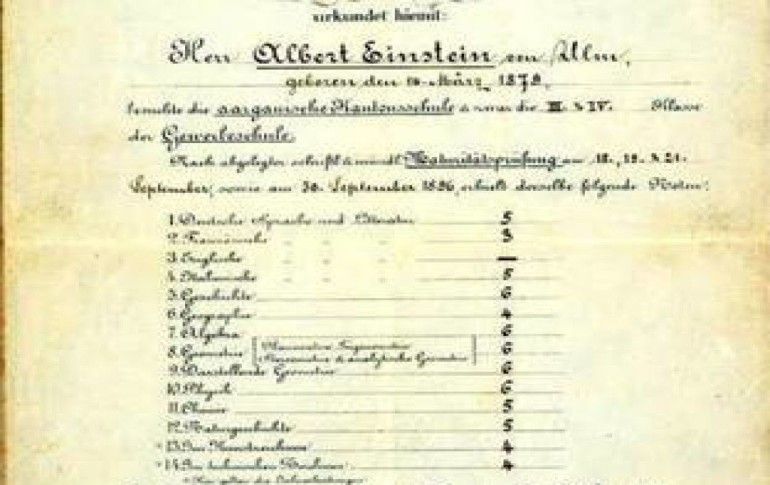 urkundet hiemit:
Herr Albert Einstein von Ulm,
geboren den 14. März 1879,
besuchte die aargauische Kantonsschule & zwar die III. & IV. Klasse
der Gewerbeschule.
Nach abgelegter schriftl. & mündl. Maturitätsprüfung am 18., 19. & 21.
September, sowie am 30. September 1896, erhielt derselbe folgende Noten:
1. Deutsche Sprache und Litteratur 5
2. Französische " " " 3
3. Englische " " " —
4. Italienische " " " 5
5. Geschichte 6
6. Geographie 4
7. Algebra 6
8. Geometrie [Planimetrie, Trigonometrie 6
Stereometrie & analytische Geometrie]
9. Darstellende Geometrie 6
10. Physik 6
11. Chemie 5
12. Naturgeschichte 5
* 13. Im Kunstzeichnen 4
* 14. Im technischen Zeichnen 4
* Hier gelten die Jahresleistungen.